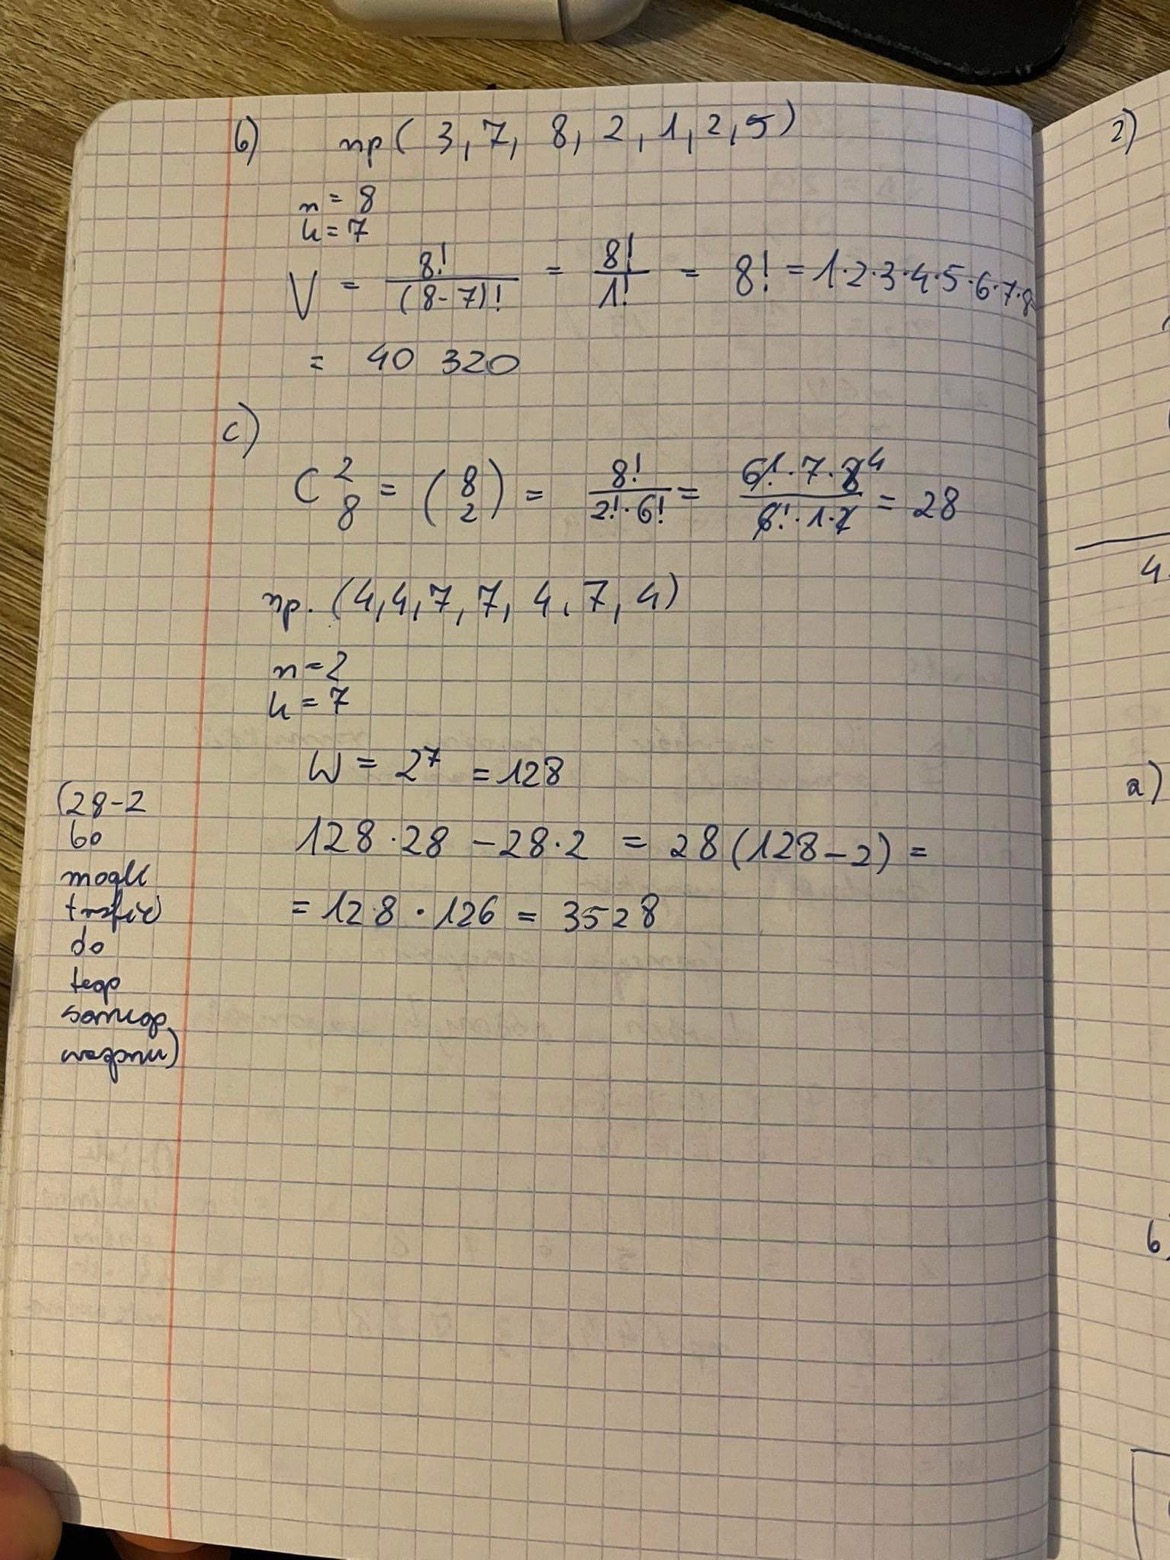 b) np ( 3, 7, 8, 2, 1, 2, 5)
n = 8
k = 7
V = 8! / (8-7)! = 8! / 1! = 8! = 1·2·3·4·5·6·7·8
= 40 320
c)
C 2 8 = (8 2) = 8! / 2!·6! = 6!·7·8 4 / 6!·1·2 = 28
np. (4,4,7,7,4,7,4)
n = 2
k = 7
W = 2^7 = 128
128·28 - 28·2 = 28(128-2) =
= 128 · 126 = 3528
(28-2
bo
mogli
trafić
do
tego
samego
wagonu)
2)
4
a)
b